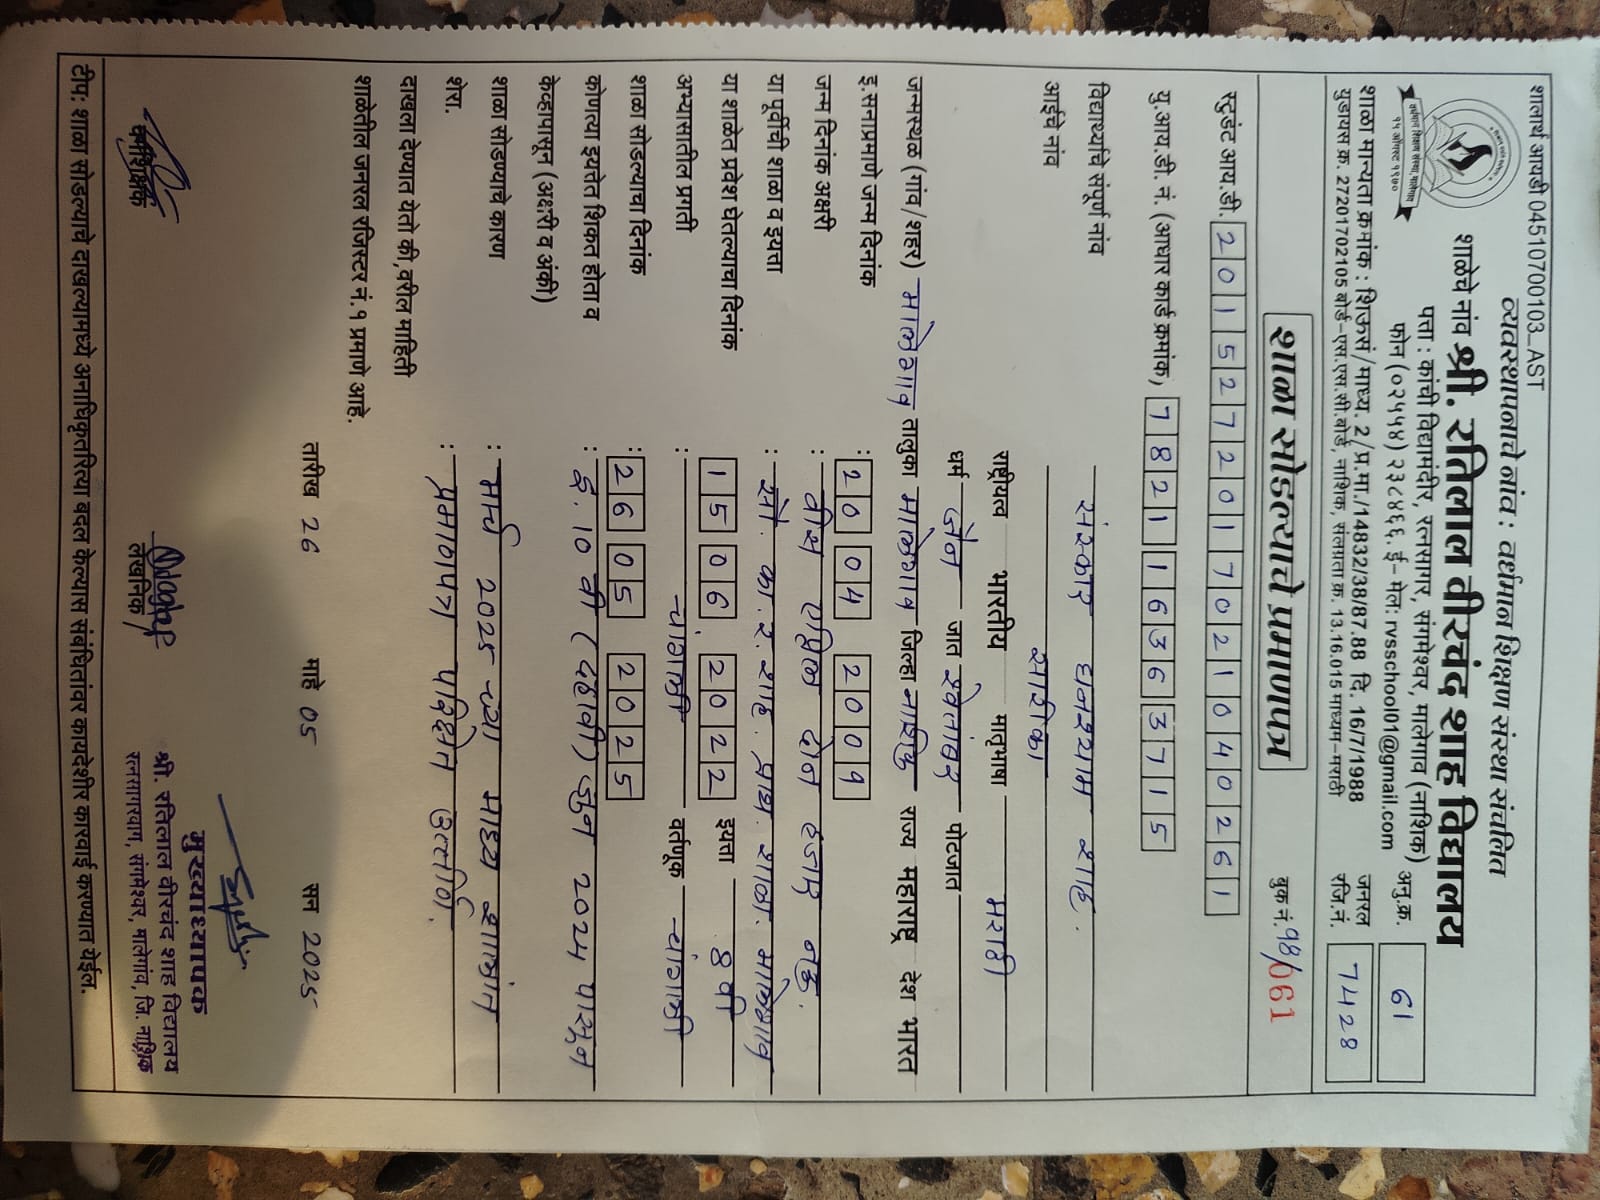 शालार्थ आयडी 04510700103_AST
व्यवस्थापनाचे नांव : वर्धमान शिक्षण संस्था संचलित
शाळेचे नांव श्री. रतिलाल वीरचंद शाह विद्यालय
पत्ता : कांची विद्यामंदीर, रत्नसागर, संगमेश्वर, मालेगाव (नाशिक)
फोन (०२५५४) २३८४६६. ई- मेल: rvsschool01@gmail.com
वर्धमान शिक्षण संस्था, मालेगाव
१५ ऑगस्ट १९७०
अनु.क्र. 61
शाळा मान्यता क्रमांक : शिऊसं/माध्य. 2/प्र.मा./14832/38/87.88 दि. 16/7/1988
युडायस क्र. 27201702105 बोर्ड-एस.एस.सी.बोर्ड, नाशिक, संलग्नता क्र. 13.16.015 माध्यम-मराठी
जनरल रजि.नं. 7428
शाळा सोडल्याचे प्रमाणपत्र
बुक नं. १८/061
स्टुडंट आय.डी. 2015272017021040261
यु.आय.डी. नं. (आधार कार्ड क्रमांक) 782116363715
विद्यार्थ्याचे संपूर्ण नांव संस्कार घनश्याम शाह.
आईचे नांव सारीका
राष्ट्रीयत्व भारतीय मातृभाषा मराठी
धर्म जैन जात श्वेतांबर पोटजात
जन्मस्थळ (गांव/शहर) मालेगाव तालुका मालेगाव जिल्हा नाशिक राज्य महाराष्ट्र देश भारत
इ.सनाप्रमाणे जन्म दिनांक : 20 04 2009
जन्म दिनांक अक्षरी : वीस एप्रिल दोन हजार नऊ.
या पूर्वीची शाळा व इयत्ता : सौ. का. र. शाह. प्राथ. शाळा. मालेगाव
या शाळेत प्रवेश घेतल्याचा दिनांक 15 06 2022 इयत्ता 8 वी
अभ्यासातील प्रगती : चांगली वर्तणूक चांगली
शाळा सोडल्याचा दिनांक : 26 05 2025
कोणत्या इयत्तेत शिकत होता व : इ. 10 वी (दहावी) जुन 2024 पासून
केव्हापासून (अक्षरी व अंकी)
शाळा सोडण्याचे कारण : मार्च 2025 च्या माध्य शालांत
शेरा. : प्रमाणपत्र परिक्षेत उत्तीर्ण.
दाखला देण्यात येतो की, वरील माहिती
शाळेतील जनरल रजिस्टर नं. १ प्रमाणे आहे.
तारीख 26 माहे 05 सन 2025
वर्गशिक्षक
लेखनिक
मुख्याध्यापक
श्री. रतिलाल वीरचंद शाह विद्यालय
रत्नसागरबाग, संगमेश्वर, मालेगांव, जि. नाशिक
टीप: शाळा सोडल्याचे दाखल्यामध्ये अनाधिकृतरित्या बदल केल्यास संबंधितांवर कायदेशीर कारवाई करण्यात येईल.